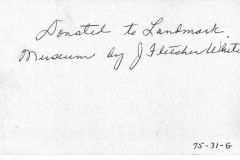 Donated to Landmark.
Museum by J Fletcher White
75-31-G